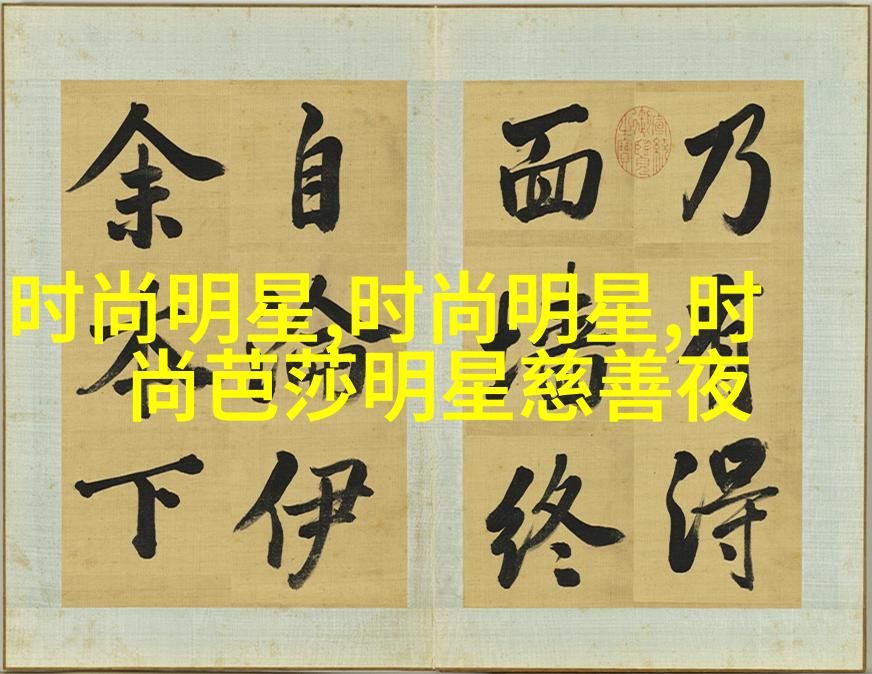 时尚明星,时尚明星,时
尚芭莎明星慈善夜
乃有得
面墻終
自淪伊
余本下